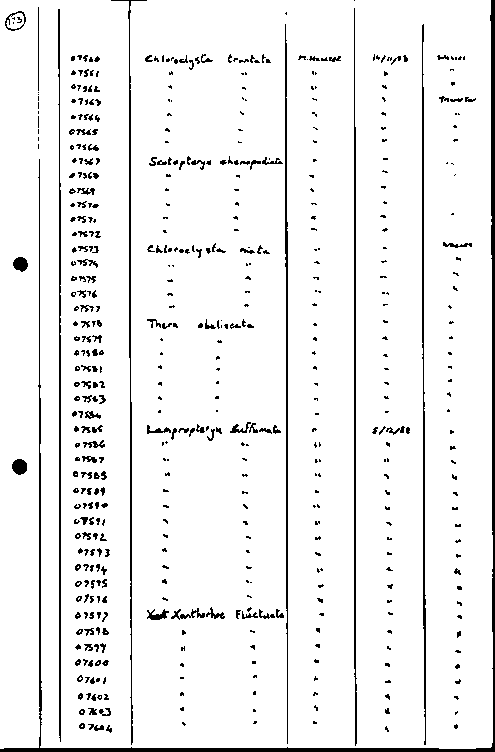 173
07560 Chloroclysta truntata 14/11/88
07561 " " " " "
07562 " " " " "
07563 " " " "
07564 " " " " "
07565 " " " " "
07566 " " " "
07567 Scotopteryx chenopodiata " " "
07568 " " " "
07569 " " " "
07570 " " " "
07571 " " " " "
07572 " " " "
07573 Chloroclysta miata " "
07574 " " " " "
07575 " " " " "
07576 " " " " "
07577 " " " " "
07578 Thera obeliscata " " "
07579 " " " " "
07580 " " " " "
07581 " " " " "
07582 " " " " "
07583 " " " " "
07584 " " " " "
07585 Lampropteryx Suffumata " 5/12/88 "
07586 " " " " "
07587 " " " " "
07588 " " " " "
07589 " " " " "
07590 " " " " "
07591 " " " " "
07592 " " " " "
07593 " " " " "
07594 " " " " "
07595 " " " " "
07596 " " " " "
07597 Xanthorhoe Fluctuata " " "
07598 " " " " "
07599 " " " " "
07600 " " " " "
07601 " " " " "
07602 " " " " "
07603 " " " " "
07604 " " " " "